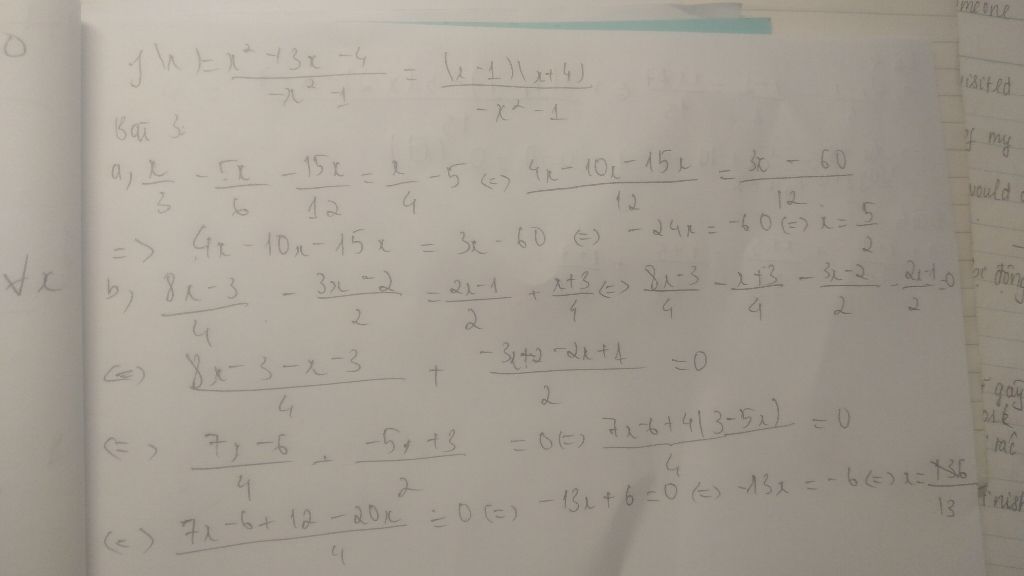 f(x) = x² + 3x - 4 / -x² - 1 = (x-1)(x+4) / -x² - 1
Bài 3:
a, x/3 - 5x/6 - 15x/12 = x/4 - 5 <=> 4x - 10x - 15x / 12 = 3x - 60 / 12
=> 4x - 10x - 15x = 3x - 60 <=> - 24x = -60 <=> x = 5/2
∀x
b, 8x-3 / 4 - 3x-2 / 2 = 2x-1 / 2 + x+3 / 4 <=> 8x-3 / 4 - x+3 / 4 - 3x-2 / 2 - 2x-1 / 2 = 0
<=> 8x - 3 - x - 3 / 4 + -3x+2 -2x+1 / 2 = 0
<=> 7x - 6 / 4 + -5x + 3 / 2 = 0 <=> 7x-6+4(3-5x) / 4 = 0
<=> 7x - 6 + 12 - 20x / 4 = 0 <=> -13x + 6 = 0 <=> -13x = -6 <=> x = 6 / 13
meone
of my
would
động